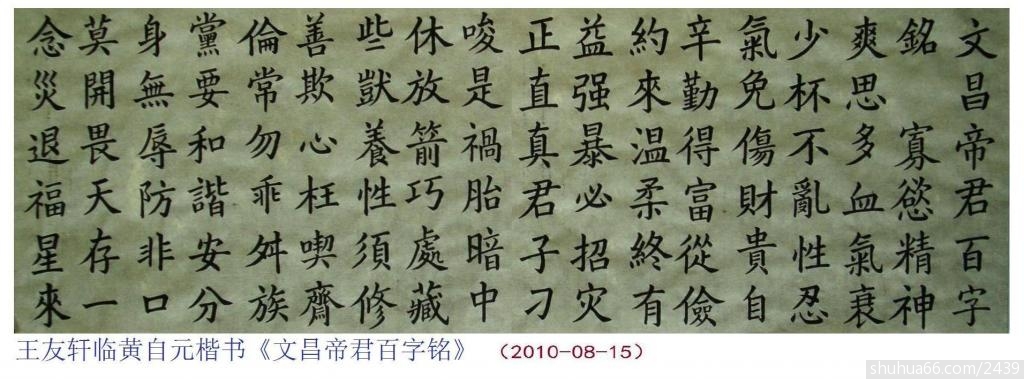 文昌帝君百字
銘 寡慾精神
爽思多血氣衰
少杯不亂性忍
氣免傷財貴自
辛勤得富從儉
約來温柔終有
益强暴必招灾
正直真君子刁
唆是禍胎暗中
休放箭巧處藏
些獸養性須修
善欺心枉喫齊
倫常勿乖舛族
黨要和諧安分
身無辱防非口
莫開畏天存一
念災退福星來
王友轩临黄自元楷书《文昌帝君百字铭》 （2010-08-15）
shuhua66.com/2439